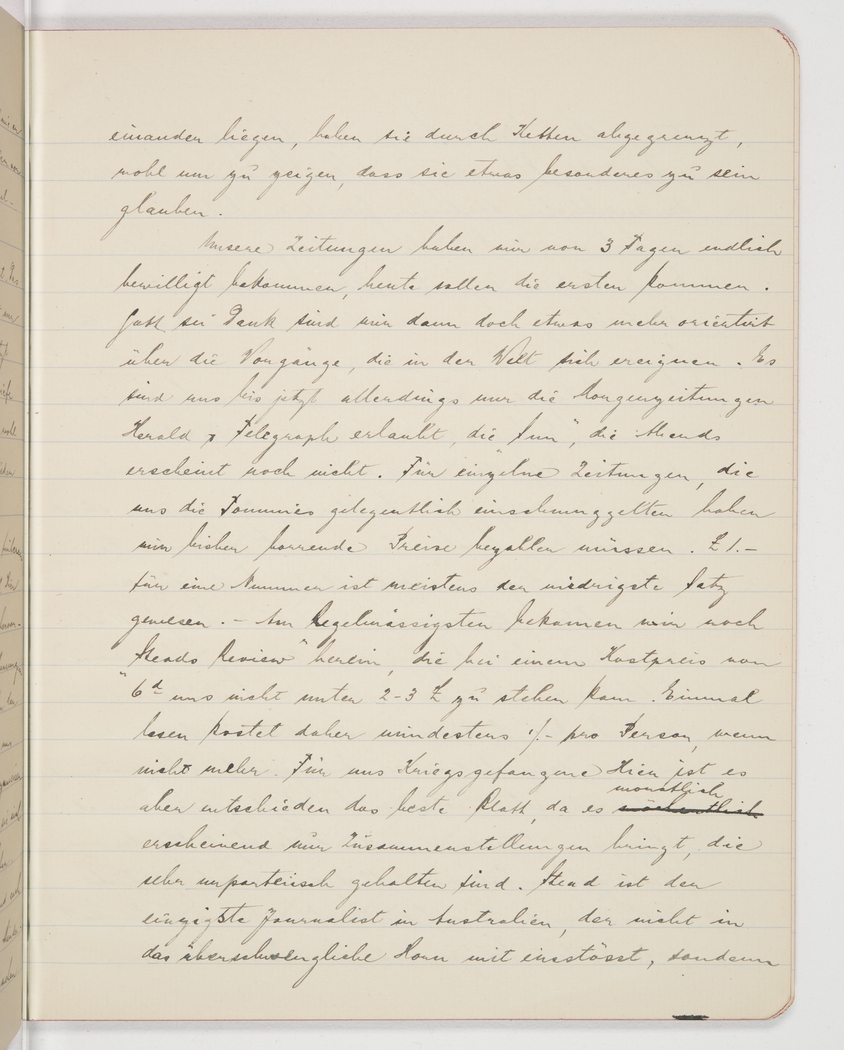 einander liegen, haben sie durch Ketten abgegrenzt,
wohl um zu zeigen, dass sie etwas besonderes zu sein
glauben.
Unsere Zeitungen haben wir von 3 Tagen endlich
bewilligt bekommen, heute sollen die ersten kommen.
Gott sei Dank sind wir dann doch etwas mehr orientirt
über die Vorgänge, die in der Welt sich ereignen. Es
sind uns bis jetzt allerdings nur die Morgenzeitungen
Herald & Telegraph erlaubt, die „Sun“, die Abends
erscheint noch nicht. Für einzelne Zeitungen, die
uns die Tommies gelegentlich einschmuggelten haben
wir bisher horrende Preise bezallen müssen. £ 1.–
für eine Nummer ist meistens der niedrigste Satz
gewesen. – Am Regelmässigsten bekamen wir noch
„Steads Review“ herein, die bei einem Kostpreis von
6d uns nicht unter 2-3 £ zu stehen kam. Einmal
lesen kostet daher mindestens 1/- pro Person, wenn
nicht mehr. Für uns Kriegsgefangene Hier ist es
monatlich
aber entschieden das beste Blatt, da es wöchentlich
erscheinend nur Zusammenstellungen bringt, die
sehr unparteiisch gehalten sind. Stead ist der
einzigste Journalist in Australien, der nicht in
das überschwengliche Horn mit einstösst, sondern